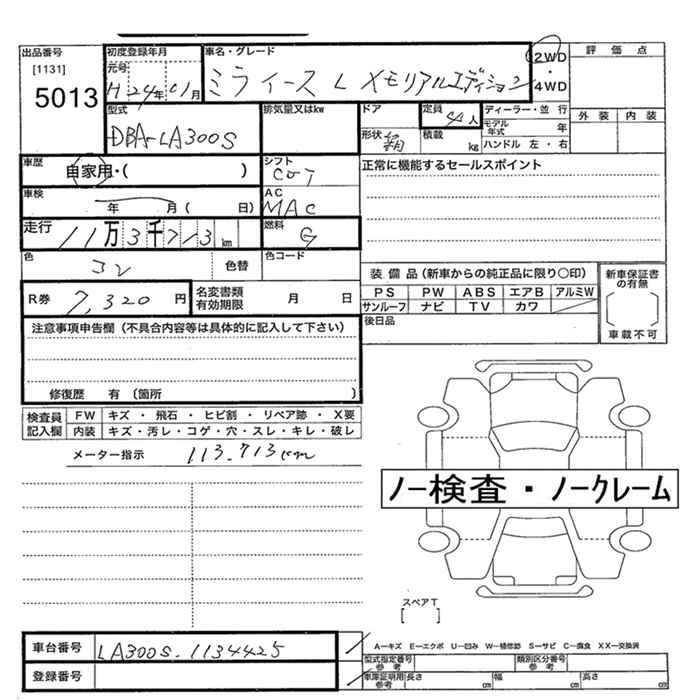 出品番号
[1131]
5013
初度登録年月
元号
H 24年 01月
車名・グレード
ミライース L メモリアルエディション
2WD
・
4WD
評価点
外装 内装
型式
DBA-LA300S
排気量又はkw
ドア
形状
定員
4人
積載
kg
ディーラー・並行
モデル年式 年
ハンドル 左・右
車歴
自家用・( )
シフト
正常に機能するセールスポイント
車検
年 月( 日)
AC
MAC
走行
11万3千713km
燃料
G
色
コン
色替
色コード
R券
7,320円
名変書類有効期限 月 日
装備品(新車からの純正品に限り○印)
PS PW ABS エアB アルミW
サンルーフ ナビ TV カワ
新車保証書の有無
車載不可
後日品
注意事項申告欄(不具合内容等は具体的に記入して下さい)
修復歴 有(箇所 )
検査員記入欄
FW キズ・飛石・ヒビ割・リペア跡・X要
内装 キズ・汚レ・コゲ・穴・スレ・キレ・破レ
メーター指示 113.713km
ノー検査・ノークレーム
スペアT
[ ]
車台番号 LA300S-1134425
登録番号
A-キズ E-エクボ U-凹み W-補修跡 S-サビ C-腐食 XX-交換済
型式指定番号参考 類別区分番号参考
車庫証明用参考 長さ cm 幅 cm 高さ cm